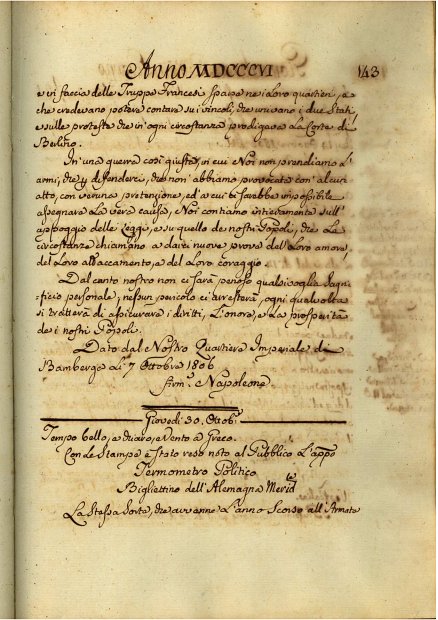 Anno MDCCCVI 143
e in faccia delle Truppe Francesi sparse nei Loro quartieri, e
che credevano potere contare sui vincoli, che univano i due Stati,
e sulle proteste che in ogni circostanza prodigava La Corte di
Berlino.
In una guerra così giusta, in cui Noi non prendiamo l'
armi, che p difenderci, che non abbiamo provocata con alcun
atto, con veruna pretenzione, ed a cui ci sarebbe impossibile
assegnare La vera causa, Noi contiamo intieramente sull'
appoggio delle Leggi, e su quello de nostri Popoli, che La
circostanza chiamano a darci nuove prove del Loro amore,
del Loro attaccamento, e del Loro coraggio.
Dal canto nostro non ci sarà penoso qualsivoglia sagri-
ficio personale, nessun pericolo ci arresterà, ogni qualvolta
si tratterà di assicurare i diritti, L'onore, e La prosperità
de i nostri Popoli.
Dato dal Nostro Quartiere Imperiale di
Bamberga Li 7 Ottobre 1806
firm. Napoleone
Giovedì 30. Ottob.
Tempo bello, e chiaro, e Vento a Greco.
Con Le Stampe è stato reso noto al Pubblico L'app.o
Termometro Politico
Bigliettino dell'Alemagna Merid.le
La Stessa Sorte, che avvenne L'anno Scorso all'Armata